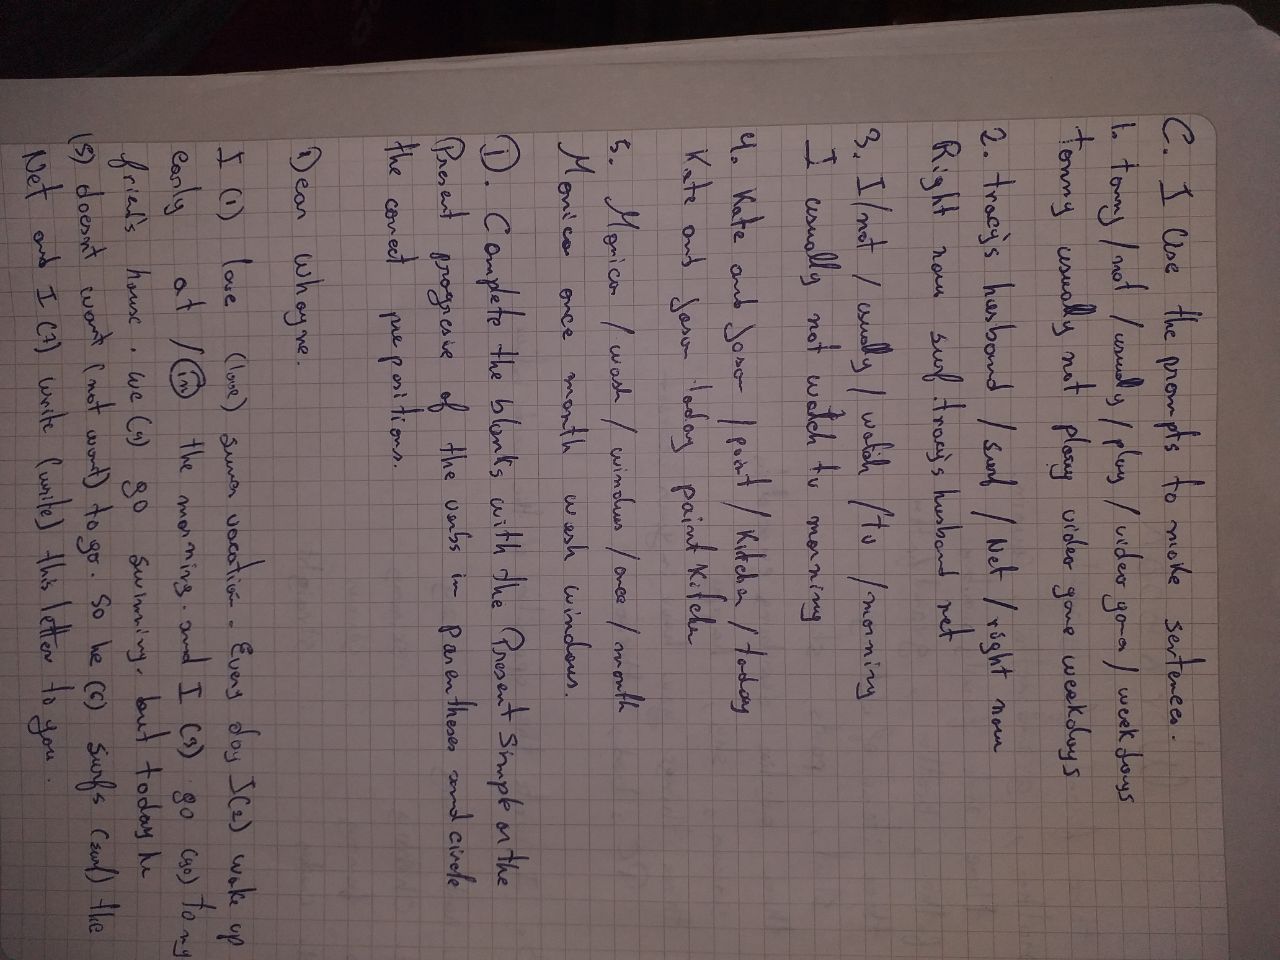 C. I Use the prompts to make sentences.
1. tomy / not / usually / play / video game / weekdays
tommy usually not playy video game weekdays
2. tracy's hasband / surf / Net / right now
Right now surf.tracy's husband net
3. I / not / usually / watch / tv / morning
I usually not watch tv morning
4. Kate and Jason / paint / kitchen / today
Kate and Jason today paint kitchen
5. Monica / wash / windows / once / month
Monica once month wash windows.
D. Complete the blanks with the Present Simple or the
Present progressive of the verbs in parentheses and circle
the correct prepositions.
Dear Whayne.
I (1) love (love) summer vacation. Every day I (2) wake up
early at / in the morning. and I (3) go (go) to my
friend's house. we (4) go swimming. but today he
(5) doesn't want (not want) to go. So he (6) surfs (surf) the
Net and I (7) write (write) this letter to you.